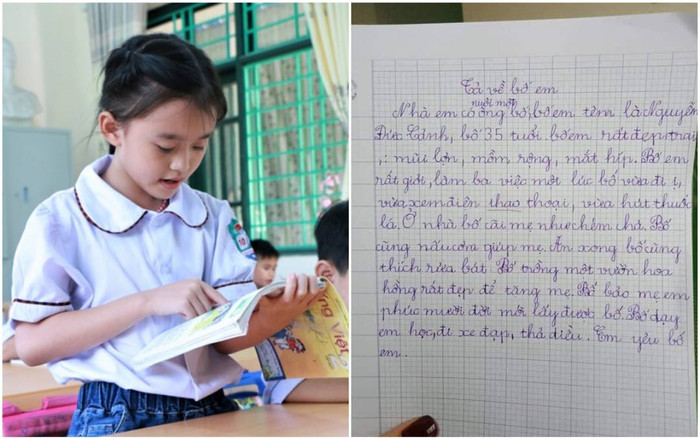 Tả về bố em
nuôi một
Nhà em có ông bố, bố em têm là Nguyễn
Đức Cảnh, bố 35 tuổi bố em rất đẹp trai
,: mũi lợn, mồm rộng, mắt híp. Bố em
rất giỏi, làm ba việc một lúc bố vừa đi ị,
vừa xem điên thao thoại, vừa hút thuốc
lá. Ở nhà bố cãi mẹ như chém chả. Bố
cũng nấu cơm giúp mẹ. Ăn xong bố cũng
thích rửa bát. Bố trồng một vườn hoa
hồng rất đẹp để tăng mẹ. Bố bảo mẹ em
phúc mười đời mới lấy được bố. Bố dạy
em học, đi xe đạp, thả diều. Em yêu bố
em.
ếng Việt
2